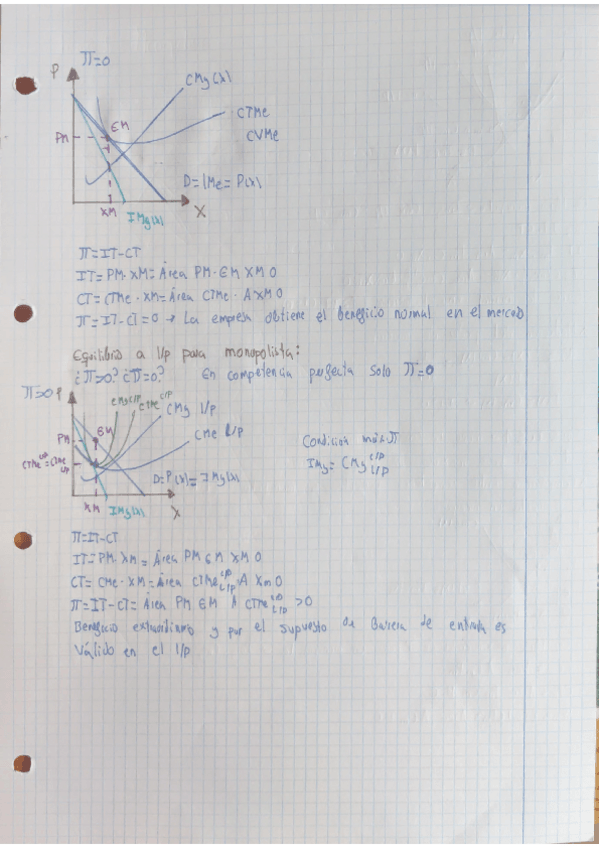 π=0
P
CMg(x)
CTMe
EM
CVMe
PM
D=IMe=P(x)
XM IMg(x) X
π=IT-CT
IT=PM·XM=Área PM·EM XM 0
CT=CTMe·XM=Área CTMe·A XM 0
π=IT-CT=0 → La empresa obtiene el beneficio normal en el mercado
Equilibrio a l/p para monopolista:
¿π>0? ¿π=0? En competencia perfecta solo π=0
π>0 P
CMg c/p CTMe c/p CMg l/p
EM
CMe l/p
PM
Condición máx π
CTMe c/p = CTMe l/p
IMg = CMg c/p l/p
D=P(x)=IMg(x)
XM IMg(x) X
π=IT-CT
IT=PM·XM= Área PM EM XM 0
CT= CMe·XM=Área CTMe c/p l/p A Xm 0
π=IT-CT= Área PM EM A CTMe c/p l/p >0
Beneficio extraordinario y por el supuesto de Barrera de entrada es
válido en el l/p